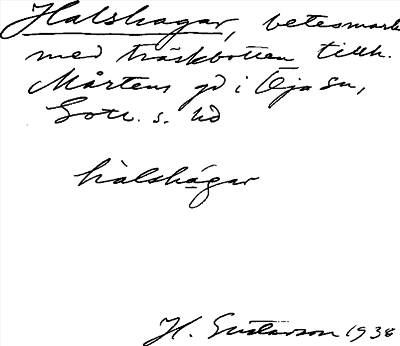 Halshagar, betesmark
med träskbotten tillh.
Mårtens gd i Öja sn,
Gotl. s. hd
hàlshágar
H. Gustavson 1938